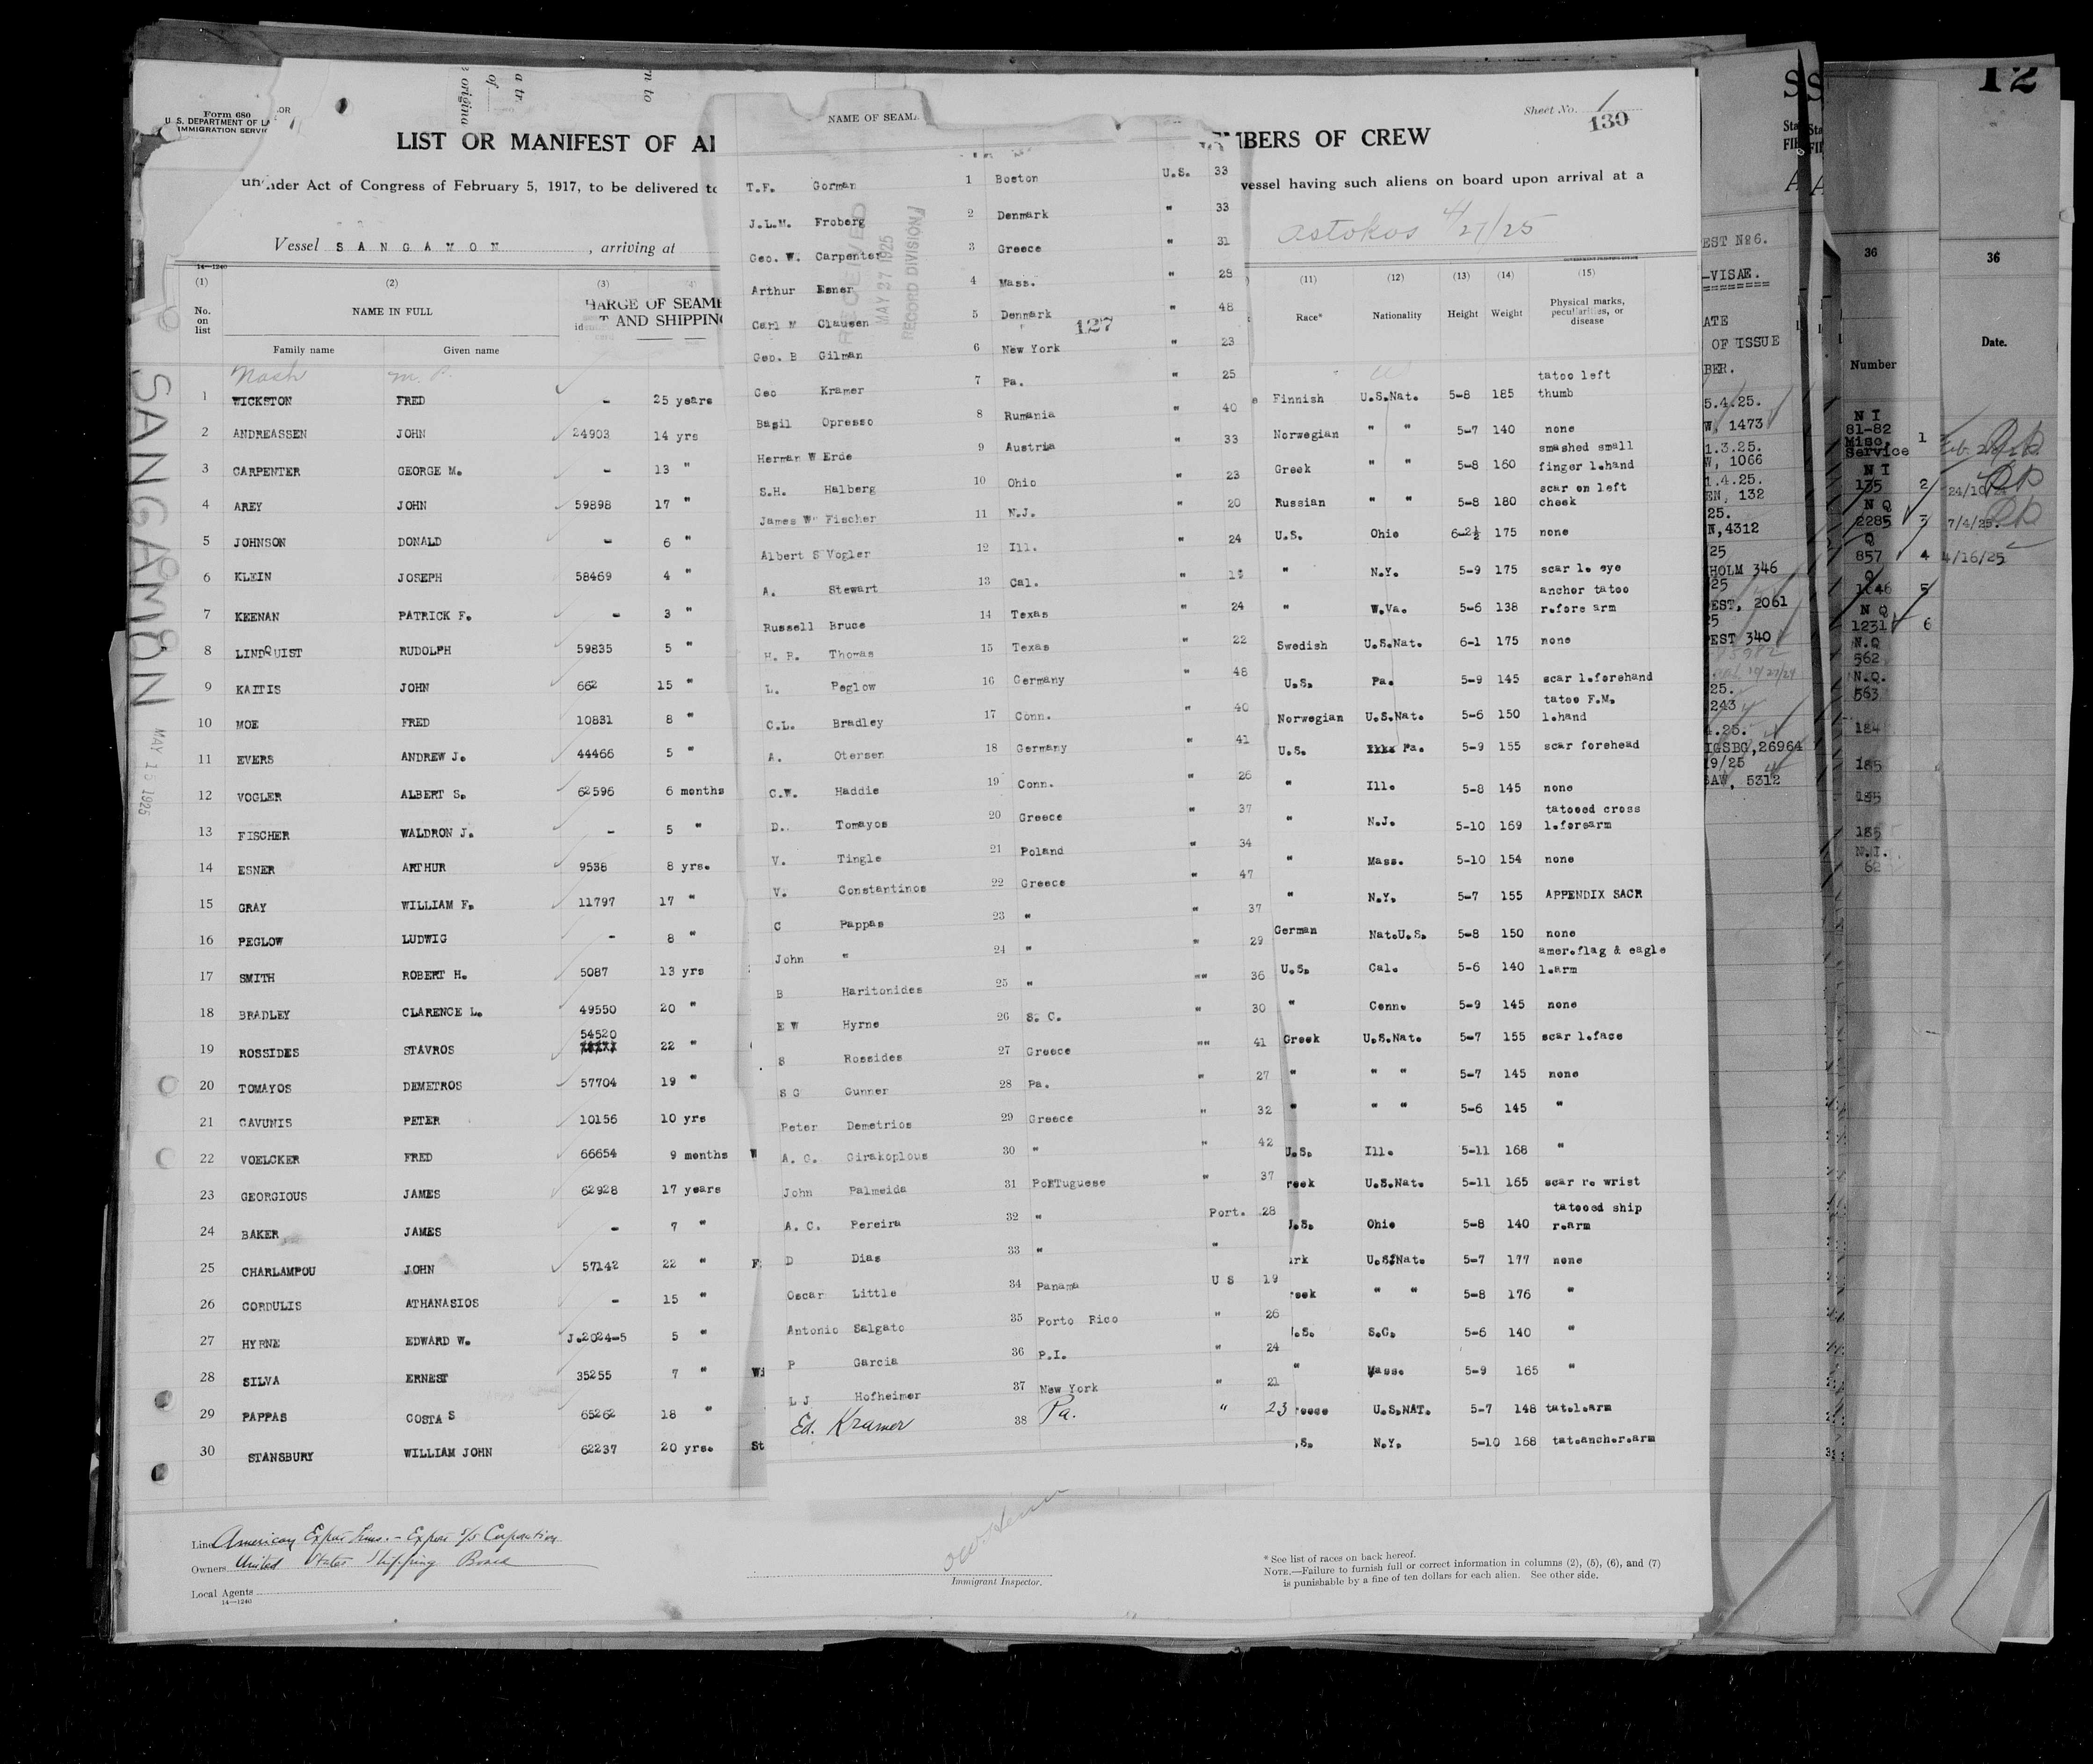 Form 680
U. S. DEPARTMENT OF LA
IMMIGRATION SERVIC
Sheet No. 1
130
LIST OR MANIFEST OF AL
MBERS OF CREW
under Act of Congress of February 5, 1917, to be delivered to
vessel having such aliens on board upon arrival at a
Vessel SANGAMON , arriving at
4/27/25
14—1240
(1) (2) (3)
No. on list
NAME IN FULL
HARGE OF SEAME
T AND SHIPPING
Family name Given name
Nash M. P.
1 WICKSTON FRED - 25 years
2 ANDREASSEN JOHN 24903 14 yrs
3 CARPENTER GEORGE M. - 13 "
4 AREY JOHN 59898 17 "
5 JOHNSON DONALD - 6 "
6 KLEIN JOSEPH 58469 4 "
7 KEENAN PATRICK F. - 3 "
8 LINDQUIST RUDOLPH 59835 5 "
9 KAITIS JOHN 662 15 "
10 MOE FRED 10831 8 "
11 EVERS ANDREW J. 44466 5 "
12 VOGLER ALBERT S. 62596 6 months
13 FISCHER WALDRON J. - 5 "
14 ESNER ARTHUR 9538 8 yrs.
15 GRAY WILLIAM F. 11797 17 "
16 PEGLOW LUDWIG - 8 "
17 SMITH ROBERT H. 5087 13 yrs
18 BRADLEY CLARENCE L. 49550 20 "
54520
19 ROSSIDES STAVROS 22 "
20 TOMAYOS DEMETROS 57704 19 "
21 CAVUNIS PETER 10156 10 yrs
22 VOELCKER FRED 66654 9 months
23 GEORGIOUS JAMES 62928 17 years
24 BAKER JAMES - 7 "
25 CHARLAMPOU JOHN 57142 22 "
26 CORDULIS ATHANASIOS - 15 "
27 HYRNE EDWARD W. J.2024-5 5 "
28 SILVA ERNEST 35255 7 "
29 PAPPAS COSTA S 65262 18 "
30 STANSBURY WILLIAM JOHN 62237 20 yrs.
SANGAMON
MAY 15 1925
NAME OF SEAM
T.F. Gorman 1 Boston U.S. 33
J.L.M. Froberg 2 Denmark " 33
Geo. W. Carpenter 3 Greece " 31
Arthur Esner 4 Mass. " 28
Carl M Clausen 5 Denmark " 48
Geo. B Gilman 6 New York " 23
Geo Kramer 7 Pa. " 25
Basil Opresso 8 Rumania " 40
Herman W Erde 9 Austria " 33
S.H. Halberg 10 Ohio " 23
James W Fischer 11 N.J. " 20
Albert S Vogler 12 Ill. " 24
A. Stewart 13 Cal. "
Russell Bruce 14 Texas " 24
H. R. Thomas 15 Texas " 22
L. Peglow 16 Germany " 48
C.L. Bradley 17 Conn. " 40
A. Otersen 18 Germany " 41
C.W. Haddie 19 Conn. " 26
D. Tomayos 20 Greece " 37
V. Tingle 21 Poland " 34
V. Constantinos 22 Greece " 47
C Pappas 23 " " 37
John " 24 " " 29
B Haritonides 25 " "" 36
E W Hyrne 26 S. C. " 30
S Rossides 27 Greece "" 41
S G Gunner 28 Pa. " 27
Peter Demetrios 29 Greece " 32
A. C. Girakoplous 30 " " 42
John Palmeida 31 PoRTuguese " 37
A. C. Pereira 32 " Port. 28
D Dias 33 " "
Oscar Little 34 Panama U S 19
Antonio Salgato 35 Porto Rico " 26
P Garcia 36 P.I. " 24
L J Hofheimer 37 New York " 21
Ed. Kramer 38 Pa. " 23
RECEIVED
MAY 27 1925
RECORD DIVISION
127
(11) (12) (13) (14) (15)
Race* Nationality Height Weight Physical marks, peculiarities, or disease
Finnish U.S.Nat. 5-8 185 tatoo left thumb
Norwegian " " 5-7 140 none
Greek " " 5-8 160 smashed small finger l.hand
Russian " " 5-8 180 scar on left cheek
U.S. Ohio 6-2½ 175 none
" N.Y. 5-9 175 scar l. eye
" W.Va. 5-6 138 anchor tatoo r.fore arm
Swedish U.S.Nat. 6-1 175 none
U.S. Pa. 5-9 145 scar l.forehand
Norwegian U.S.Nat. 5-6 150 tatoo F.M. l.hand
U.S. Pa. 5-9 155 scar forehead
" Ill. 5-8 145 none
" N.J. 5-10 169 tatooed cross l.forearm
" Mass. 5-10 154 none
" N.Y. 5-7 155 APPENDIX SACR
German Nat.U.S. 5-8 150 none
U.S. Cal. 5-6 140 amer.flag & eagle l.arm
" Conn. 5-9 145 none
Greek U.S.Nat. 5-7 155 scar l.face
" " " 5-7 145 none
" " " 5-6 145 "
U.S. Ill. 5-11 168 "
reek U.S.Nat. 5-11 165 scar r. wrist
U.S. Ohio 5-8 140 tatooed ship r.arm
ark U.S.Nat. 5-7 177 none
reek " " 5-8 176 "
.S. S.C. 5-6 140 "
" Mass. 5-9 165 "
reece U.S.NAT. 5-7 148 tat.l.arm
.S. N.Y. 5-10 168 tat.anchor.arm
Line American Export Lines.- Export S/S Corporation
Owners United States Shipping Board
Local Agents
14—1240
Immigrant Inspector.
* See list of races on back hereof.
NOTE.—Failure to furnish full or correct information in columns (2), (5), (6), and (7)
is punishable by a fine of ten dollars for each alien. See other side.
EST No6.
-VISAE.
ATE
OF ISSUE
BER.
5.4.25.
W, 1473
1.3.25.
W, 1066
1.4.25.
EN, 132
25.
N,4312
25
HOLM 346
25
EST, 2061
25
EST 340
25.
243
4.25.
IGSBG,26964
19/25
SAW, 5312
12
36 36
Number Date.
N I
81-82
Misc.
Service 1
N I
135 2
N Q
2285 3 7/4/25.
Q
857 4 4/16/25
Q
1646 5
N Q
1231 6
N.Q
562
N.Q.
563
184
185
185
185
N.I.
62